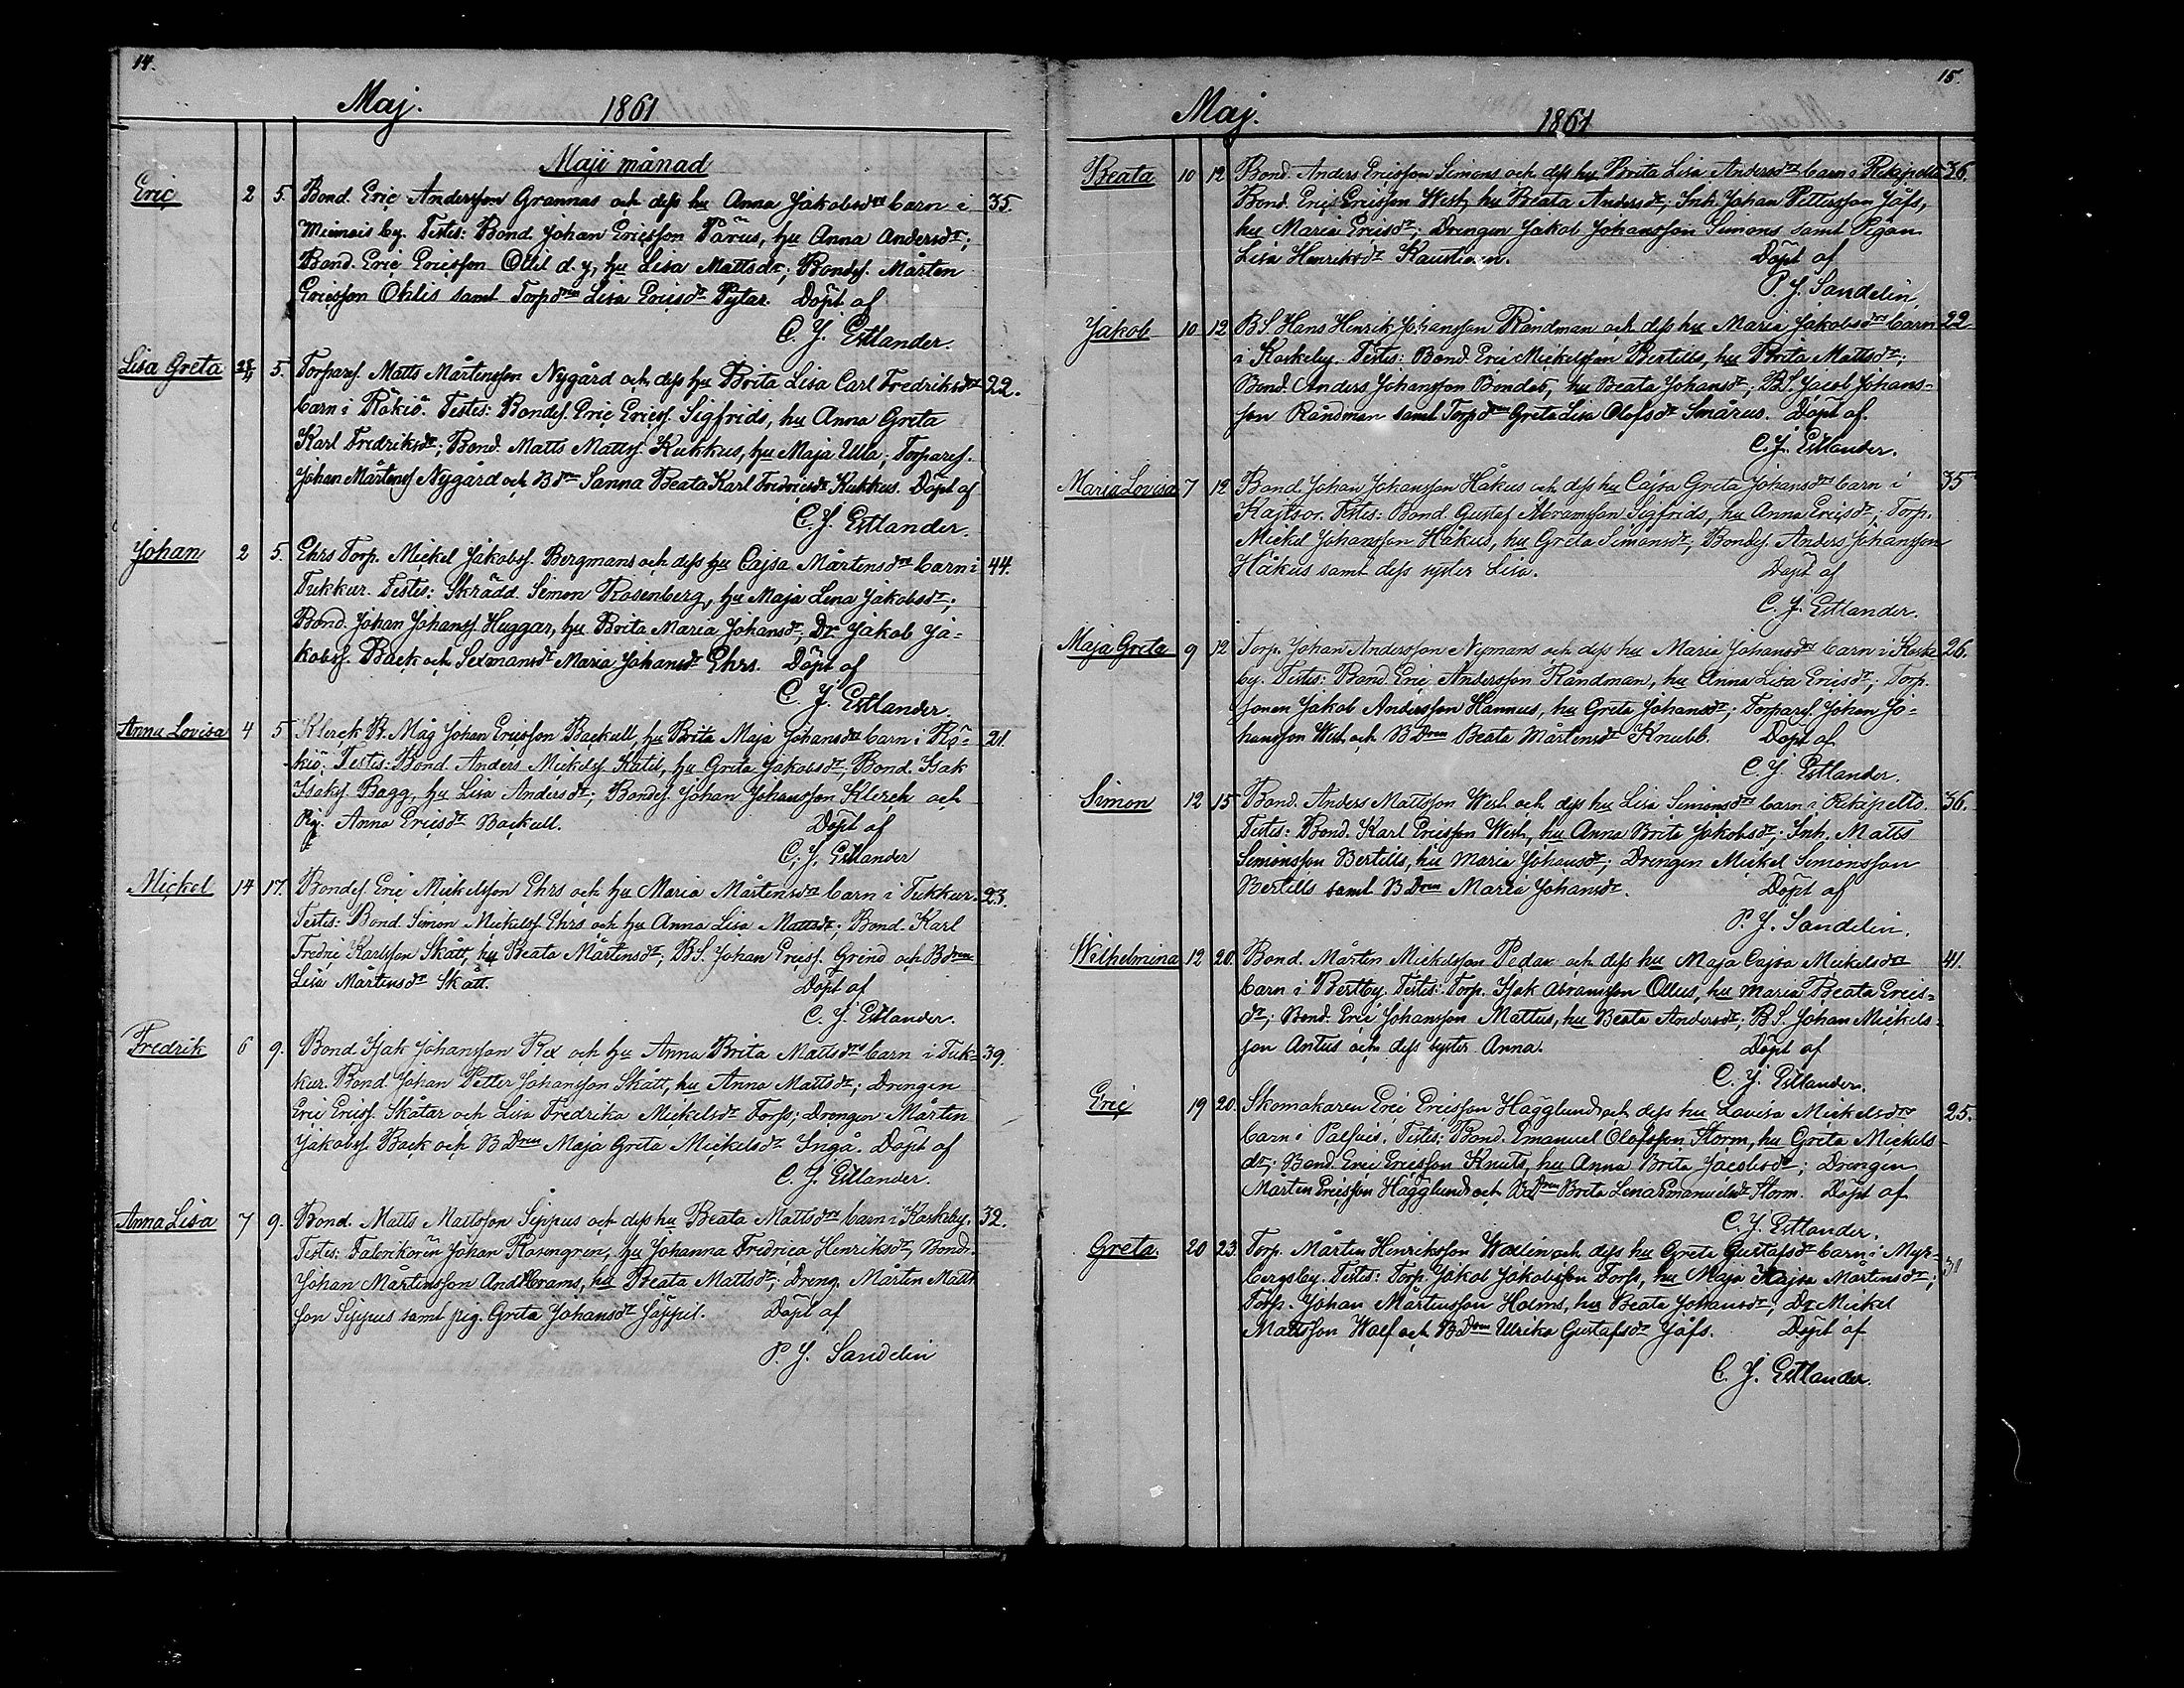 14.
Maj. 1861
Maji månad
Eric 2 5. Bond. Eric Andersson Grannas och dess hu Anna Jakobsdrs barn i 35.
Miemois by. Testes: Bond. Johan Ericsson Pärus, hu Anna Andersdr;
Bond. Eric Ericsson Ollil d. y, hu Lisa Mattsdr; Bondes. Mårten
Ericsson Ohlis samt Torpdrn Lisa Ericsdr Pytar. Döpt af
C. J. Estlander.
Lisa Greta 28/4 5. Torpares. Matts Mårtensson Nygård och dess hu Brita Lisa Carl Fredriksdrs 22.
barn i Rökiö. Testes: Bondes. Eric Ericss. Sigfrids, hu Anna Greta
Karl Fredriksdr; Bond. Matts Mattss. Kukkus, hu Maja Ulla; Torpares.
Johan Mårtenss Nygård och Bdrn Sanna Beata Karl Fredricsdr Kukkus. Döpt af
C. J. Estlander.
Johan 2 5. Ehrs Torp. Mickel Jakobss. Bergmans och dess hu Cajsa Mårtensdrs barn i 44.
Tukkur. Testes: Skrädd. Simon Rosenberg, hu Maja Lena Jakobsdr;
Bond. Johan Johanss Huggar, hu Brita Maria Johansdr, Dr. Jakob Ja-
kobss. Back och Sexmansdr Maria Johansdr Ehrs. Döpt af
C. J. Estlander.
Anna Lovisa 4 5 Klerck B. Måg Johan Ericsson Backull, hu Brita Maja Johansdrs barn i Rö- 21.
kiö. Testes: Bond. Anders Mickelss. Katil, hu Greta Jakobsdr, Bond. Isak
Isakss. Bagg, hu Lisa Andersdr; Bondes. Johan Johansson Klerck och
Pig. Anna Ericsdr Backull. Döpt af
C. J. Estlander
Mickel 14 17. Bondes Eric Mickelsson Ehrs och hu Maria Mårtensdrs barn i Tukkur. 23.
Testes: Bond. Simon Mickelss Ehrs och hu Anna Lisa Mattsdr; Bond. Karl
Fredric Karlsson Skått, hu Beata Mårtensdr; BS. Johan Ericss. Grind och Bdrn
Lisa Mårtensdr Skått. Döpt af
C. J. Estlander.
Fredrik 6 9. Bond Isak Johansson Rex och hu Anna Brita Mattsdrs barn i Tuk- 39.
kur. Bond. Johan Petter Johansson Skått, hu Anna Mattsdr; Drengen
Eric Ericss. Skåtar och Lisa Fredrika Mickelsdr Forss; Drengen Mårten
Jakobss. Back och BDrn Maja Greta Mickelsdr Ingå. Döpt af
C. J. Estlander.
Anna Lisa 7 9. Bond. Matts Mattsson Sippus och dess hu Beata Mattsdrs barn i Karkeby. 32.
Testes: Fabrikören Johan Rosengren, hu Johanna Fredrica Henriksdr, Bond.
Johan Mårtensson AndAbrams, hu Beata Mattsdr; Dreng. Mårten Matts
son Sippus samt pig. Greta Johansdr Jåppil. Döpt af
P. J. Sandelin
15.
Maj. 1861
Beata 10 12 Bond. Anders Ericsson Simons och dess hu Brita Lisa Andersdrs barn i Rikipelto 36.
Bond. Eric Ericsson West, hu Beata Andersdr; Inh. Johan Pettersson Jåfs,
hu Maria Ericsdr; Drengen Jakob Johansson Simons samt Pigan
Lisa Henriksdr Kaustinen. Döpt af
P. J. Sandelin.
Jakob 10 12 BS. Hans Henrik Johansson Rändman och dess hu Maria Jakobsdrs barn 22
i Karkeby. Testes: Bond. Eric Mickelsson Bertills, hu Brita Mattsdr;
Bond. Anders Johansson Bondas, hu Beata Johansdr; BS. Jacob Johans-
son Rändman samt Torpdrn Greta Lisa Olofsdr Smårus. Döpt af.
C. J. Estlander.
Maria Lovisa 7 12 Bond. Johan Johansson Håkus och dess hu Cajsa Greta Johansdrs barn i 35
Kajtsor. Testes: Bond. Gustaf Abramsson Sigfrids, hu Anna Ericsdr; Torp.
Mickel Johansson Håkus, hu Greta Simonsdr; Bondes. Anders Johansson
Håkus samt dess syster Lisa. Döpt af
C. J. Estlander.
Maja Greta 9 12 Torp. Johan Andersson Nymans och dess hu Maria Johansdrs barn i Karke 26.
by. Testes: Bond. Eric Andersson Rändman, hu Anna Lisa Ericsdr; Torp.
sonen Jakob Andersson Hannus, hu Greta Johansdr; Torpares. Johan Jo-
hansson West och BDrn Beata Mårtensdr Knubb. Döpt af
C. J. Estlander.
Simon 12 15 Bond. Anders Mattsson West och dess hu Lisa Simonsdrs barn i Rikipelto. 36.
Testes: Bond. Karl Ericsson West, hu Anna Brita Jakobsdr; Inh. Matts
Simonsson Bertills, hu Maria Johansdr; Drengen Mickel Simonsson
Bertills samt BDrn Maria Johansdr. Döpt af
P. J. Sandelin.
Wilhelmina 12 20. Bond. Mårten Mickelsson Pedar och dess hu Maja Cajsa Mickelsdrs 41.
barn i Bertby. Testes: Torp. Isak Abramsson Ollus, hu Maria Beata Erics-
dr; Bond. Eric Johansson Mattus, hu Beata Andersdr; BS. Johan Mickels-
son Antus och dess syster Anna. Döpt af
C. J. Estlander.
Eric 19 20. Skomakaren Eric Ericsson Hägglund och dess hu Lovisa Mickelsdrs 25.
barn i Palfvis. Testes: Bond. Emanuel Olofsson Storm, hu Greta Mickels-
dr; Bond. Eric Ericsson Knuts, hu Anna Brita Jacobsdr; Drengen
Mårten Ericsson Hägglund och BdDrn Brita Lena Emanuelsdr Storm. Döpt af
C. J. Estlander.
Greta. 20 23. Torp. Mårten Henriksson Wallin och dess hu Greta Gustafsdr barn i Myr- 31
bergsby. Testes: Torp. Jakob Jakobsson Forss, hu Maja Kajsa Mårtensdr;
Torp. Johan Mårtensson Holms, hu Beata Johansdr; Dr. Mickel
Mattsson Walf och BDrn Ulrika Gustafsdr Jåfs. Döpt af
C. J. Estlander.